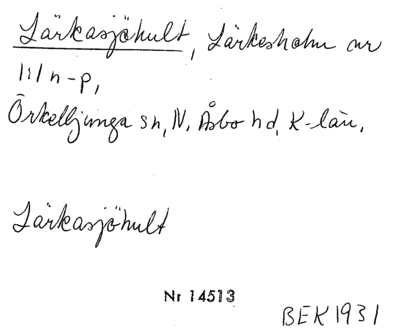 Lärkasjöhult, Lärkesholm nr
1:1 n-p,
Örkelljunga sn, N. Åsbo hd, K-län.
Lärkasjöhult
Nr 14513
BEK 1931